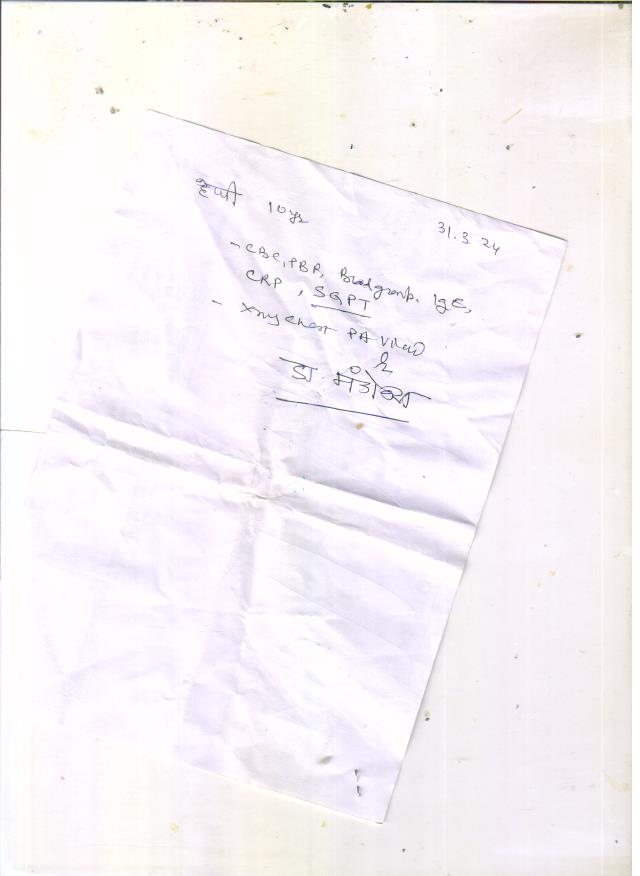 हैप्पी 10yr 31.3.24
- CBC, PBF, Blood group. IgE,
CRP, SGPT
- Xray chest PA view
डा.